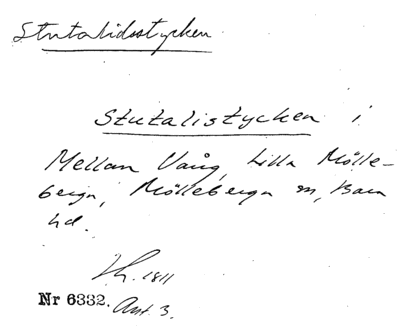 Stutalidsstycken
Stutalistycken i
Mellan Vång, Lilla Mölle-
berga, Mölleberga sn, Bara
hd.
Lh. 1811
Nr 6332. Ant. 3.